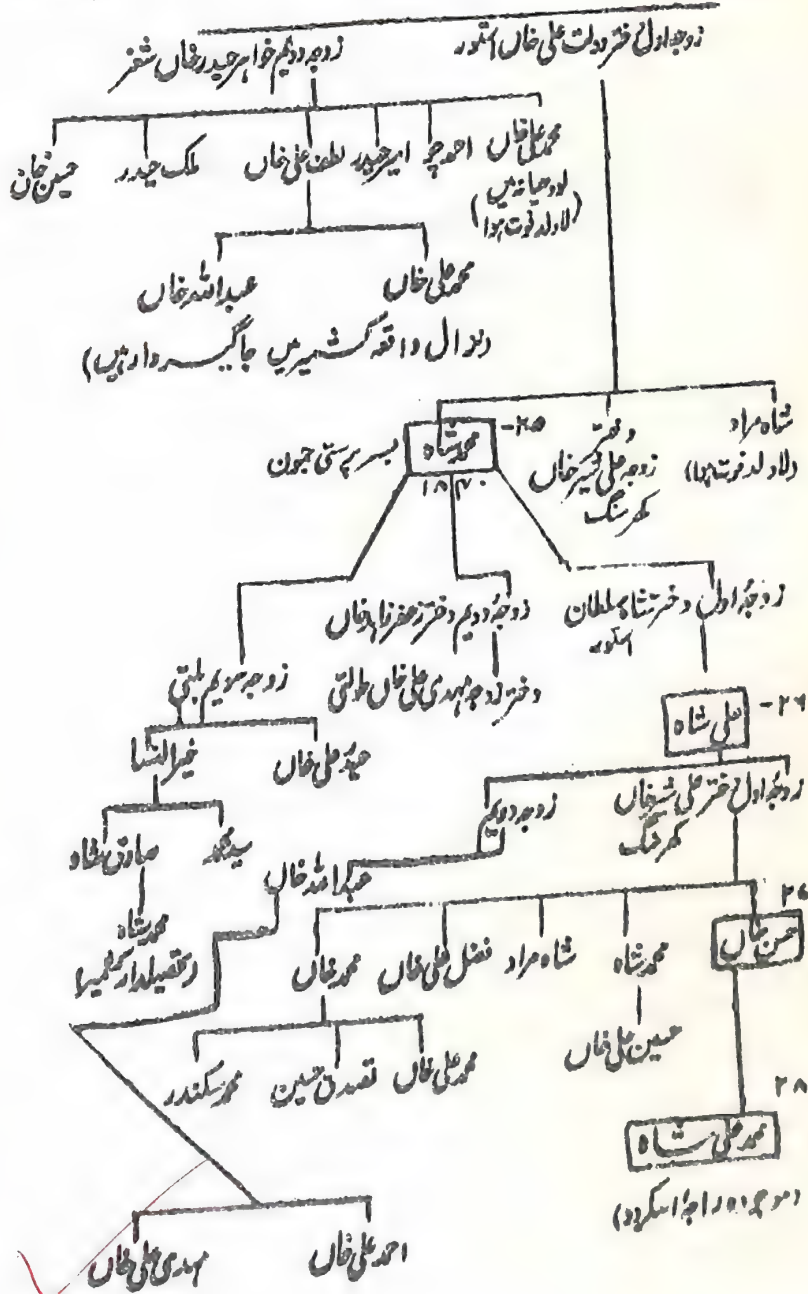 زوجہ اول دختر دولت علی خاں استور
زوجہ دویم خواہر حیدر خاں شغر
محمد علی خاں
لودھیانہ میں
(لاولد فوت ہوا)
احمد چو
امیر حیدر
لطف علی خاں
ملک حیدر
حسین خان
محمد علی خاں
عبداللہ خاں
واقعہ کشمیر میں جاگیردار ہیں)
شاہ مراد
(لاولد فوت ہوا)
دختر
زوجہ علی شیر خاں
کھرمنگ
۲۵-
محمد شاہ
۱۸۴۰
بسرپرستی جیون
زوجۂ اول دختر شاہ سلطان
استور
زوجۂ دویم دختر زعفر زاہد خاں
دختر زوجہ مہدی علی خاں طولتی
زوجہ سویم بلتی
۲۶-
علی شاہ
حیدر علی خاں
خیر النسا
زوجۂ اول دختر علی شیر خاں
کھرمنگ
زوجہ دویم
سید محمد
صادق شاہ
عبداللہ خاں
محمد شاہ
(تحصیلدار کشمیر)
۲۷
حسن خاں
محمد شاہ
شاہ مراد
فضل علی خاں
محمد خاں
حسین علی خاں
محمد علی خاں
تصدق حسین
محمد سکندر
۲۸
محمد علی شاہ
(موجودہ راجہ اسکردو)
احمد علی خاں
مہدی علی خاں